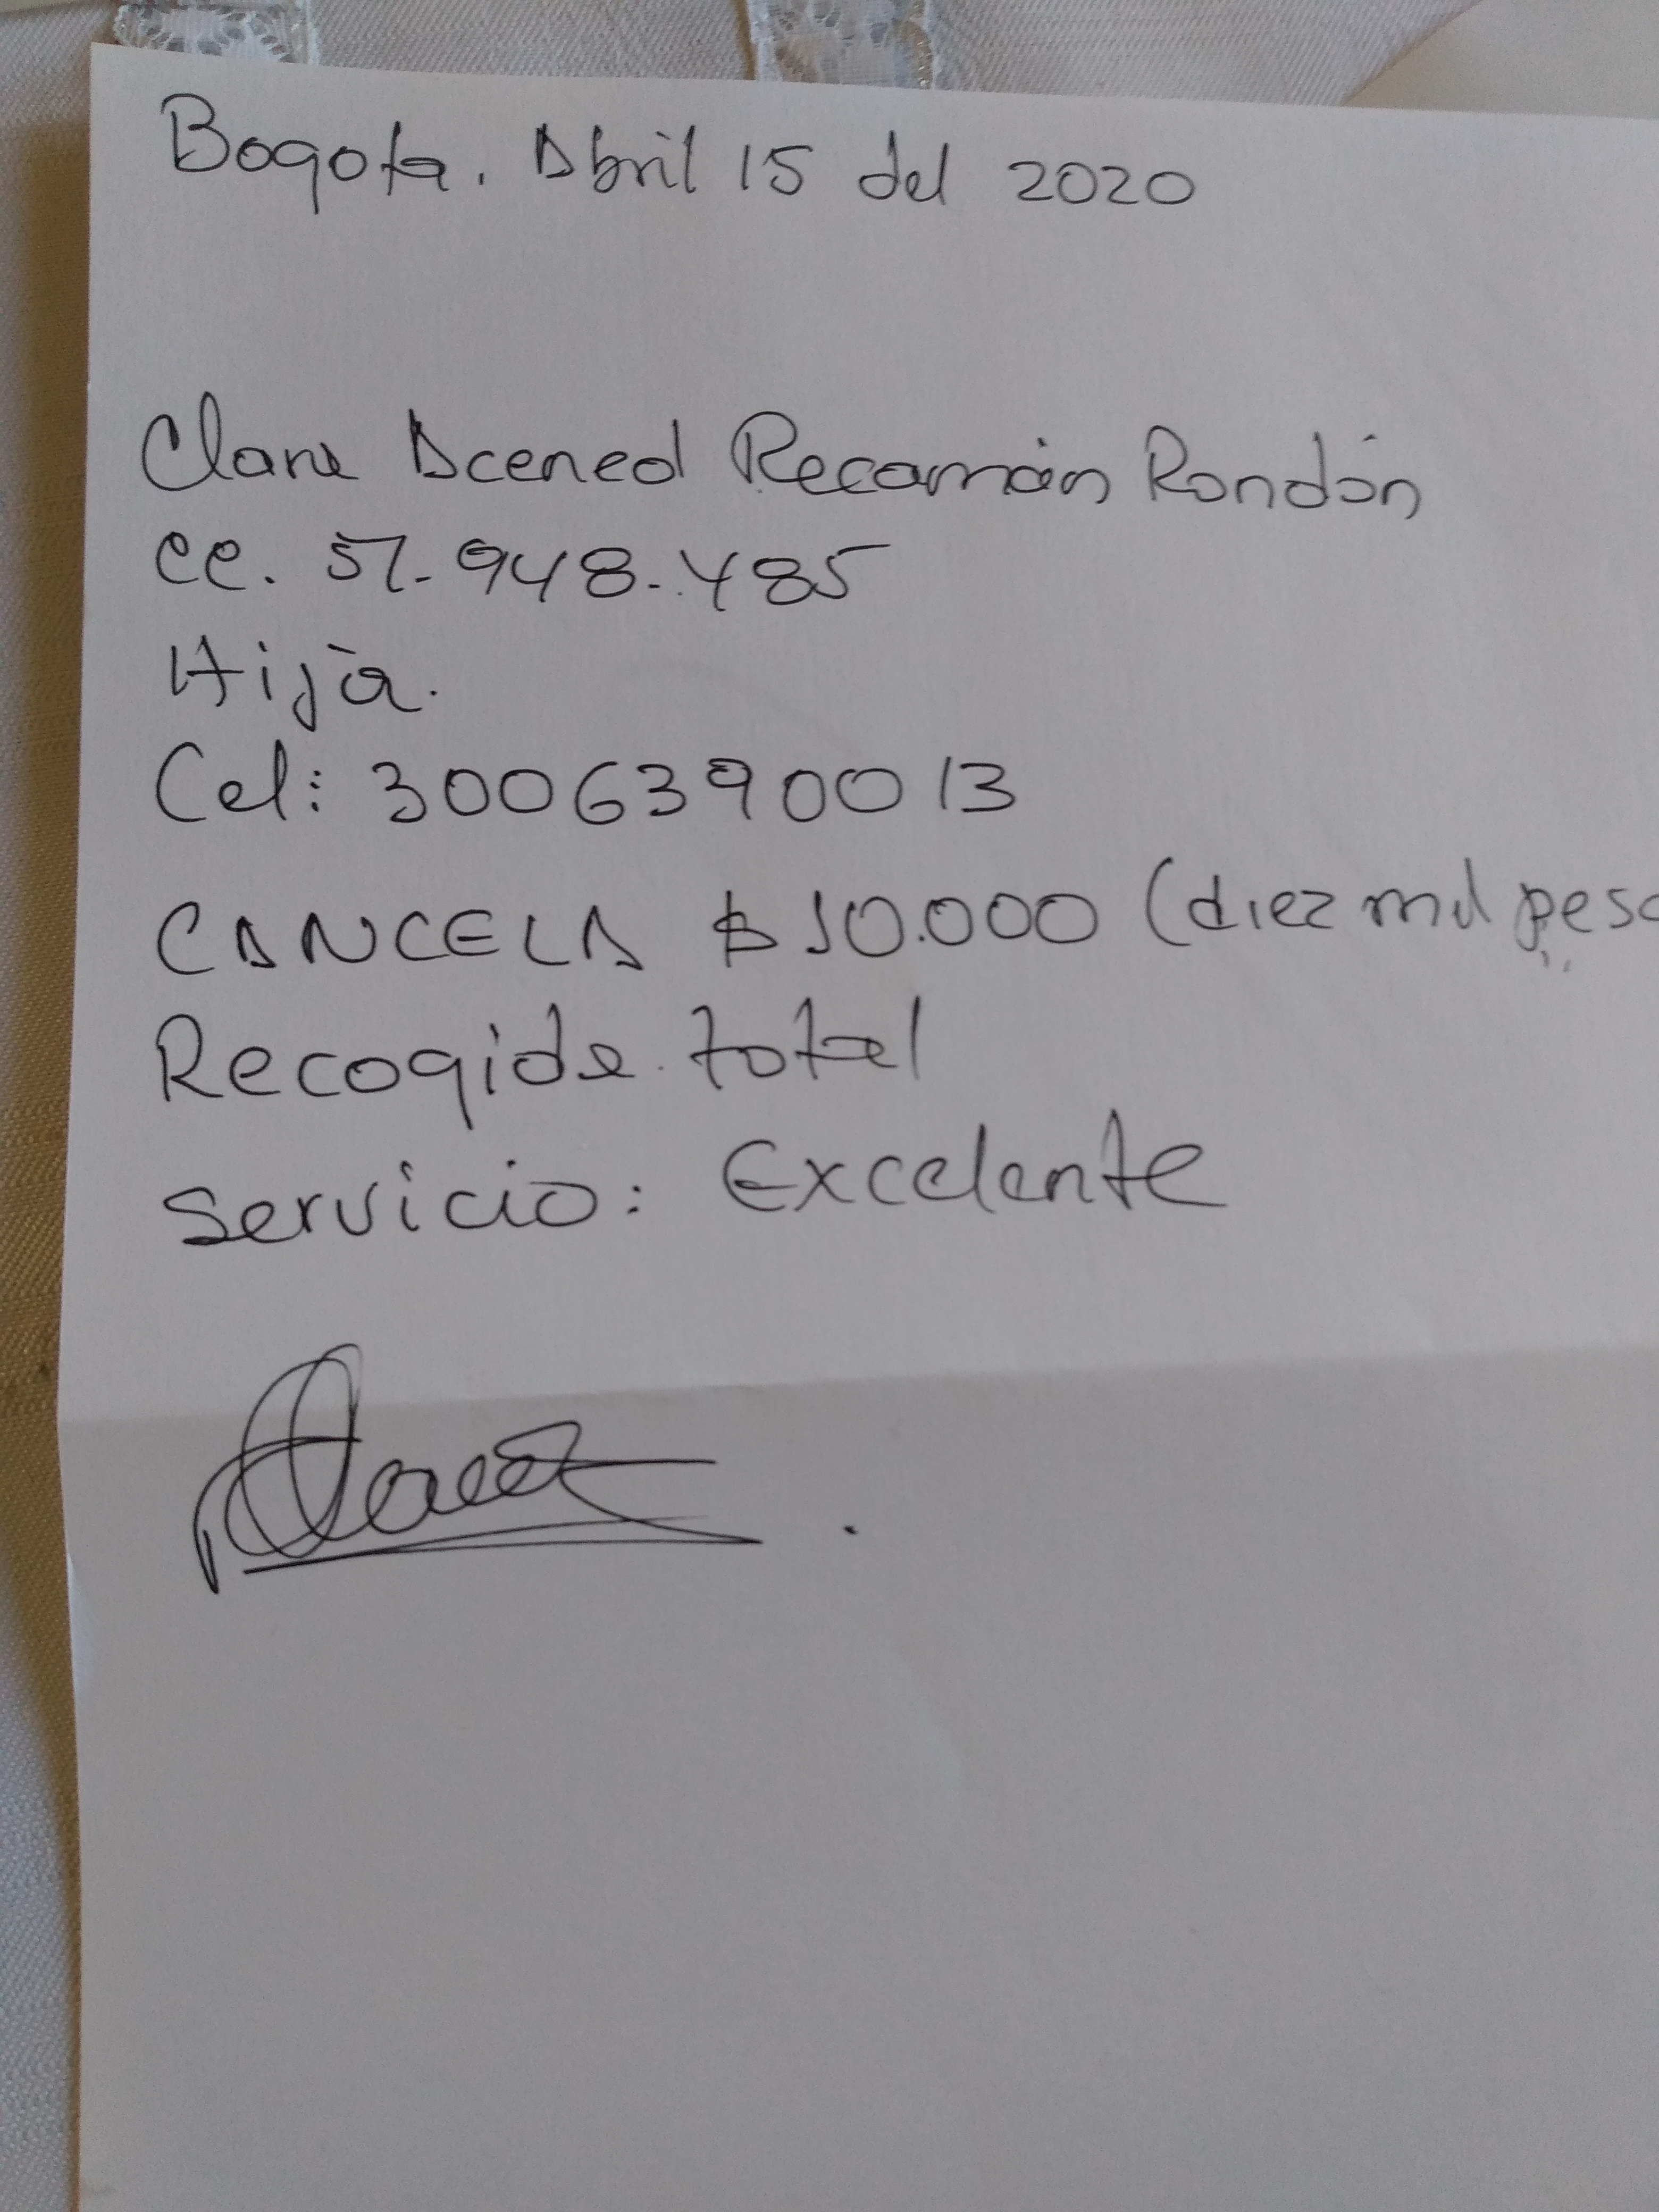 Bogota. Abril 15 del 2020
Clara Acened Recamán Rondón
CC. 51.948.485
Hija.
Cel: 3006390013
CANCELA $10.000 (diez mil peso
Recogida total
Servicio: Excelente